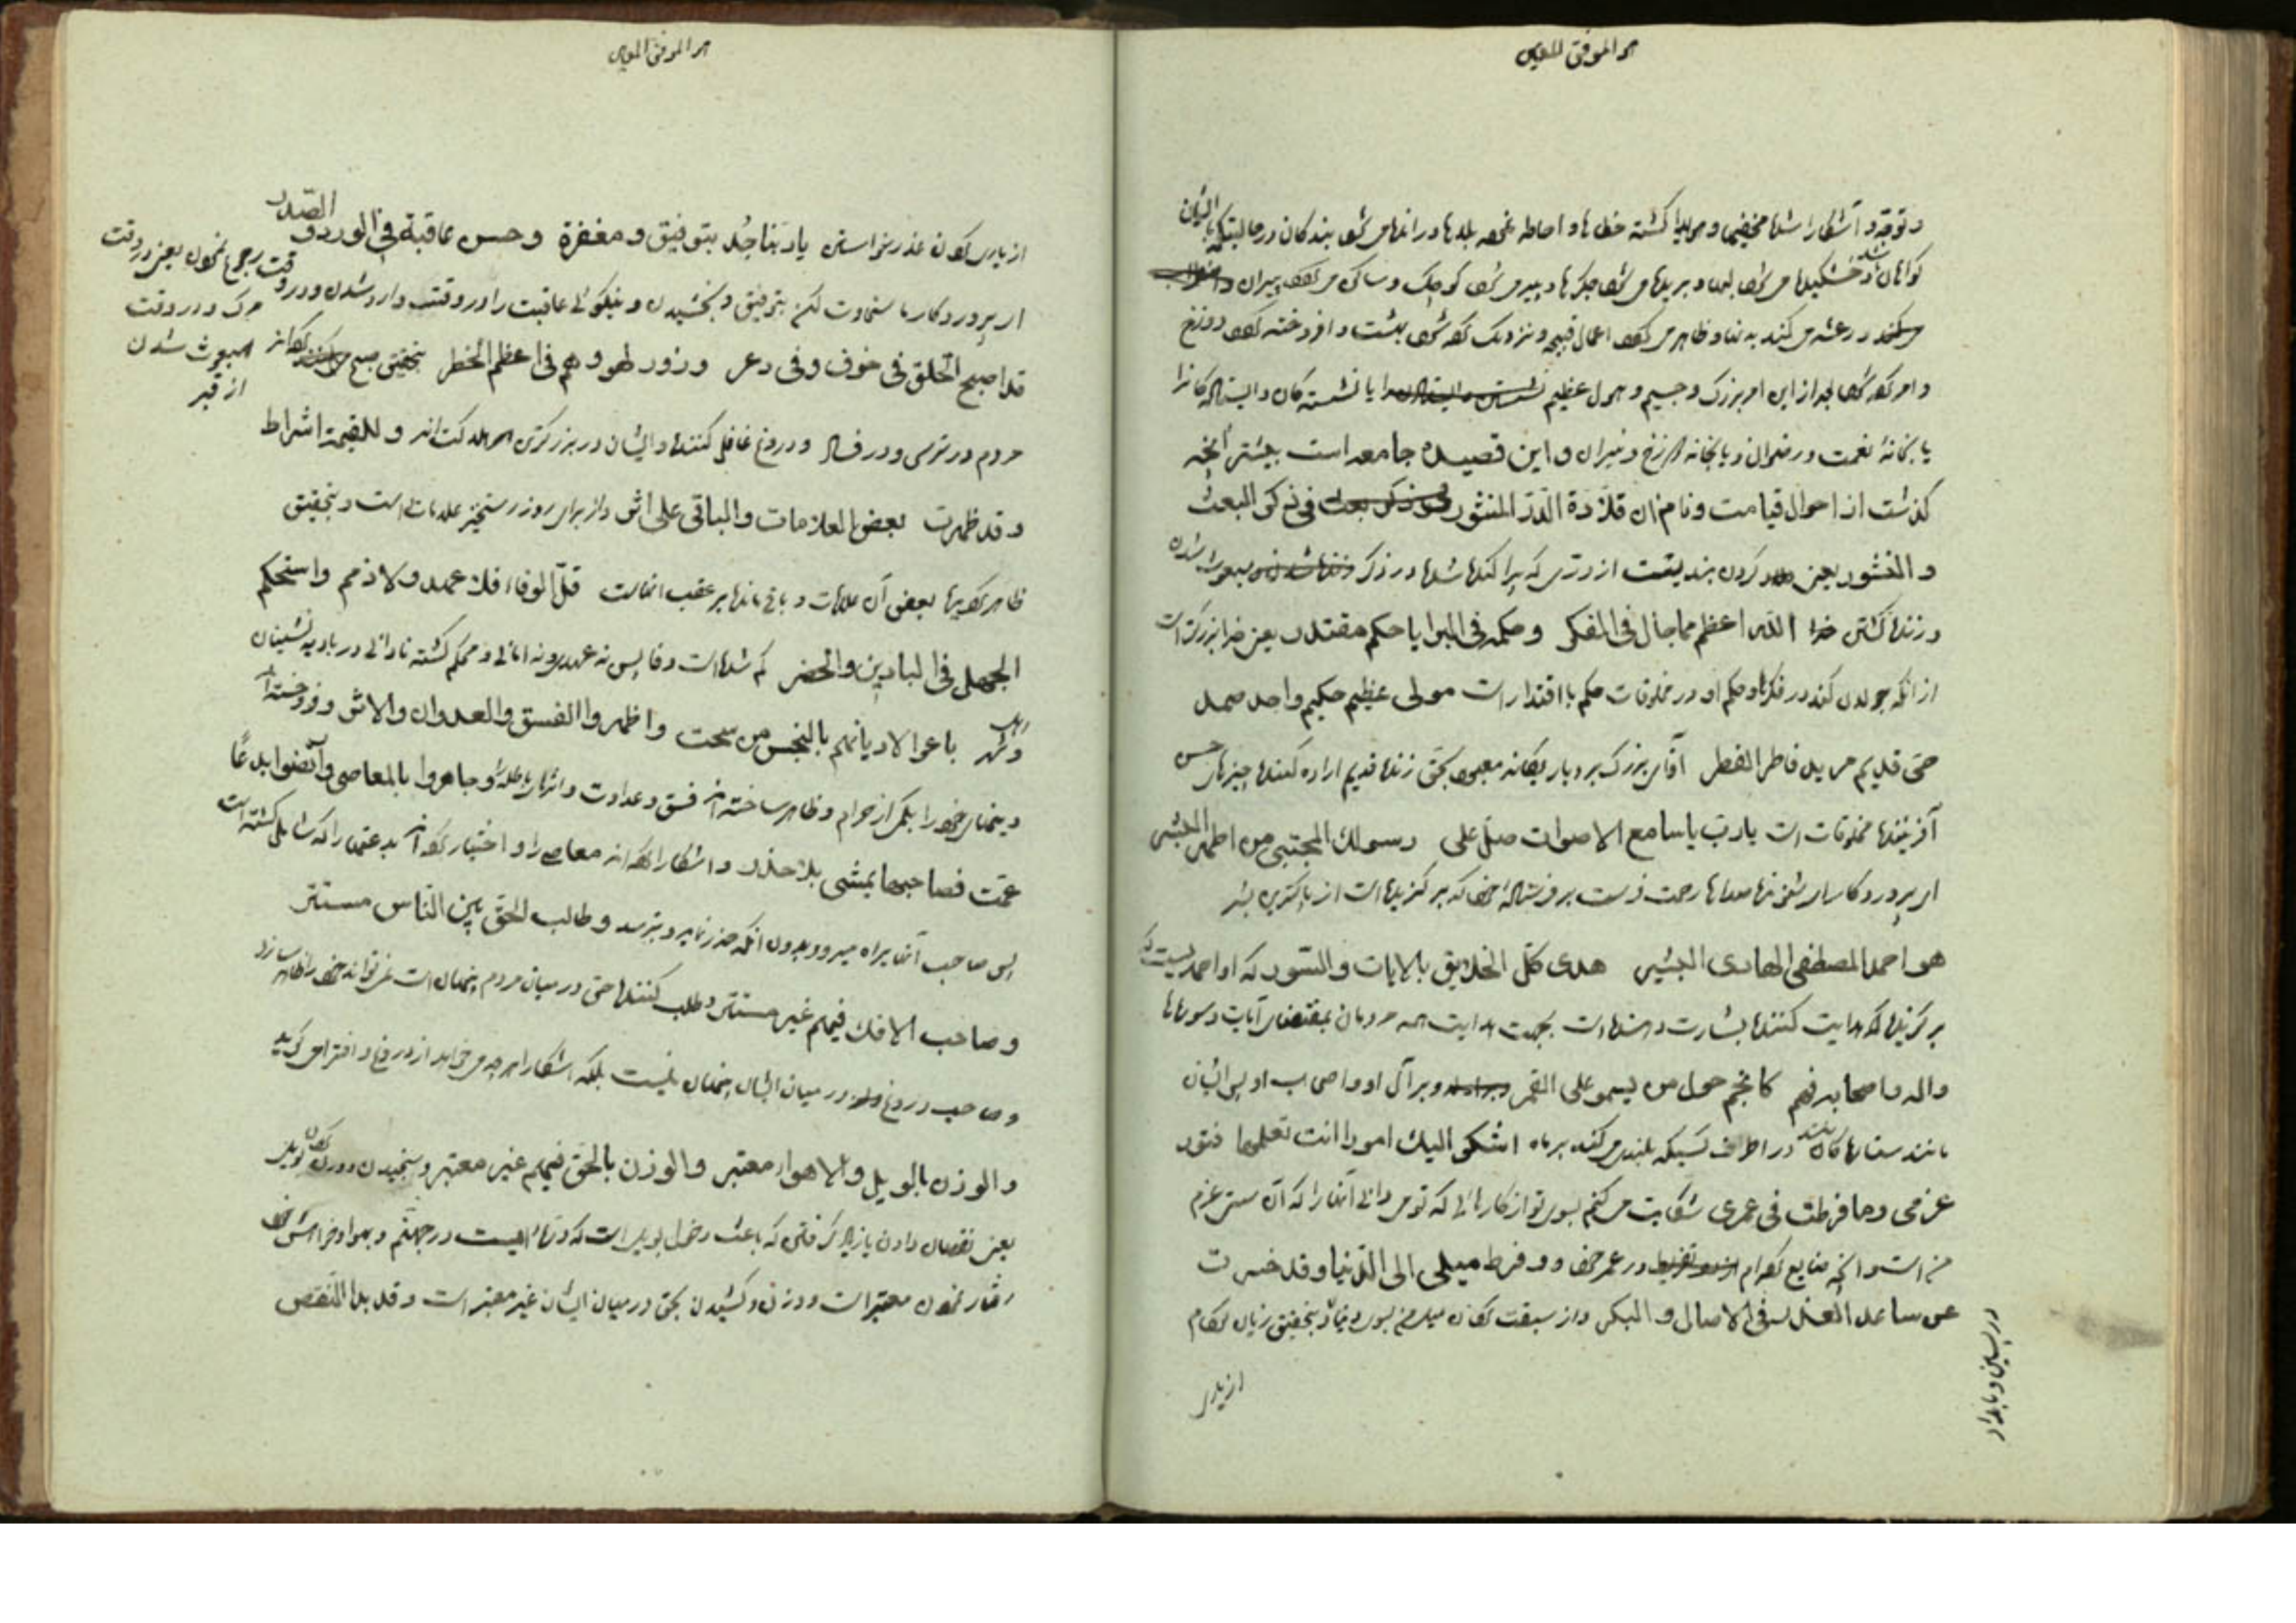 هو الموفق المعین
و توقه و آشکارا شده مخفیها و هویدا گشته خطاها و احاطه غصه بلدها و رانده می شود بندکان در حالیتیکه با ایشان
کواهان اند خشکیده می شود لبها و بریده می شود جکرها و پیر می شود کوچک و ساکن می کند پیران
و رعشه می کند به نما و ظاهر می کند اعمال قبیحه و نزدیک کرده شود بهشت و افروخته کرده دوزخ
و امر کرده شود بعد از این امر بزرک و جسیم و هول عظیم یا نشسته کان و ایستاده کانرا
یا بخانه نعمت و رضوان و یا بخانه برزخ و نیران و این قصیده جامعه است بیشتر آنچه
کذشت از احوال قیامت و نام آن قلادة الدر المنثور فی ذکر البعث
و النشور یعنی کردن بندیست از دری که پراکنده شده در ذکر مبعوث شدن
و زنده کشتن الله اعظم مما جال فی الفکر و حکمه فی البرایا حکم مقتدر یعنی خدا بزرک است
از آنکه جولان کند در فکرها و حکم او در مخلوقات حکم با اقتدار است مولی عظیم حکیم واحد صمد
حی قدیم مرید فاطر الفطر آقای بزرک بردبار یکانه معبود بحق زنده قدیم اراده کننده چیزهای حسن
آفریننده مخلوقات است یا رب یا سامع الاصوات صل علی رسولک المجتبی من اطهر البشر
ای پروردکار ای شنونده صداها رحمت فرست بر فرستاده خود که برکزیده است از پاکترین بشر
هو احمد المصطفی الهادی البشیر هدی کل الخلایق بالایات و السور که او احمد
برکزیده که هدایت کننده بشارت دهنده است بجهت هدایت همه مردمان بمقتضای آیات و سوره ها
و اله و اصحابه فهم کانجم حول من یسمو علی القمر و بر آل او و اصحاب او پس ایشان
مانند ستاره کان اند در اطراف کسیکه بلندی می کند بر ماه اشکو الیک امورا انت تعلمها فتور
عزمی و ما فرطت فی عمری شکایت می کنم بسوی تو از کارهائی که تو می دانی آنها را که آن سستی عزم
من است و آنچه ضایع کرده ام در عمر خود و فرط میلی الی الدنیا و قد خسرت
عن ساعد الغدر فی الاصال و البکر و از سبقت کردن میل من بسوی دنیا و بتحقیق زیان کرده ام
در پسین و بامداد
از یاری
هو الموفق المعین
از یاری کردن عذر خواستن یا ربنا جد بتوفیق و مغفرة و حسن عاقبة فی الورد و الصدر
ای پروردکار ما سخاوت کن بتوفیق و بخشیدن و نیکوئی عاقبت را در وقت وارد شدن و در وقت رجوع نمودن یعنی در وقت
مرک و در وقت مبعوث شدن از قبر
قد اصبح الخلق فی خوف و فی ذعر و زور لهو و هم فی اعظم الخطر بتحقیق صبح کرده اند
مردم در ترس و در فساد و دروغ غافل کننده و ایشان در بزرکترین و للقیمة اشراط
و قد ظهرت بعض العلامات و الباقی علی اثر و از برای روز رستخیز علامات است و بتحقیق
ظاهر کردیده بعض آن علامات و باقی مانده بر عقب آنهاست قل الوفاء فلا عهد و لا ذمم و استحکم
الجهل فی البادین و الحضر کم شده است وفا پس نه عهدی و نه امانی و محکم کشته نادانی در بادیه نشینان
و اهل شهر باعوا الادیانهم بالبخس من سحت و اظهروا الفسق و العدوان و الاشر و فروخته اند
دینهای خود را بکمی از حرام و ظاهر ساخته اند فسق و عداوت و جاهروا بالمعاصی و ارتضوا بدعا
عمت فصاحبها یمشی بلا حذر و آشکارا کرده اند معاصی را و اختیار کرده اند بدعتها را که شامل کشته است
پس صاحب آنها براه میرود بدون آنکه حذر نماید و بترسد و طالب الحق بین الناس مستتر
و صاحب الافک فیهم غیر مستتر و طلب کننده حق در میان مردم پنهان است نمی تواند خود را ظاهر سازد
و صاحب دروغ در میان ایشان پنهان نیست بلکه آشکارا هر چه می خواهد از دروغ و افترا می کوید
و الوزن بالویل و الاهواء معتبر و الوزن بالحق فیهم غیر معتبر و سنجیدن و وزن کردن بویل
یعنی نقصان دادن یا زیاد کرفتن که باعث دخول بویل است که در جهنم و بهوا و خواهش خود
رفتار نمودن معتبر است و وزن و کشیدن بحق در میان ایشان غیر معتبر است و قد بدا النقص